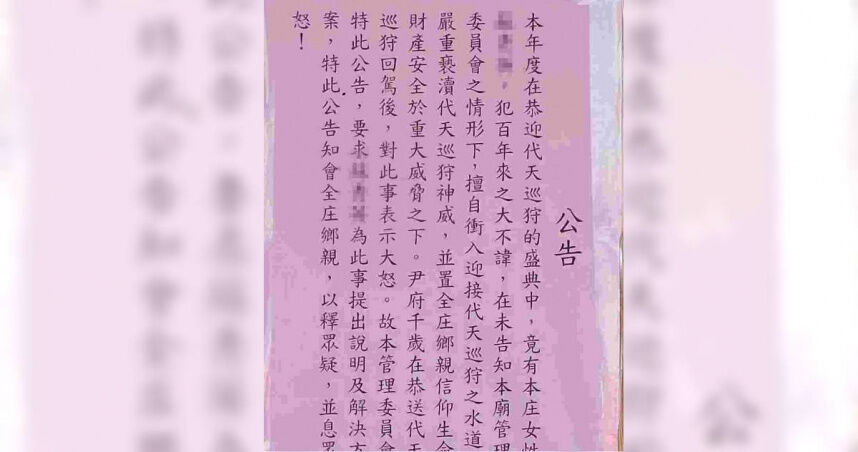 公告
本年度在恭迎代天巡狩的盛典中，竟有本庄女性
，犯百年來之大不諱，在未告知本廟管理
委員會之情形下，擅自衝入迎接代天巡狩之水道
嚴重褻瀆代天巡狩神威，並置全庄鄉親信仰生命
財產安全於重大威脅之下。尹府千歲在恭送代天
巡狩回駕後，對此事表示大怒。故本管理委員會
特此公告，要求為此事提出說明及解決方
案，特此公告知會全庄鄉親，以釋眾疑，並息眾
怒！